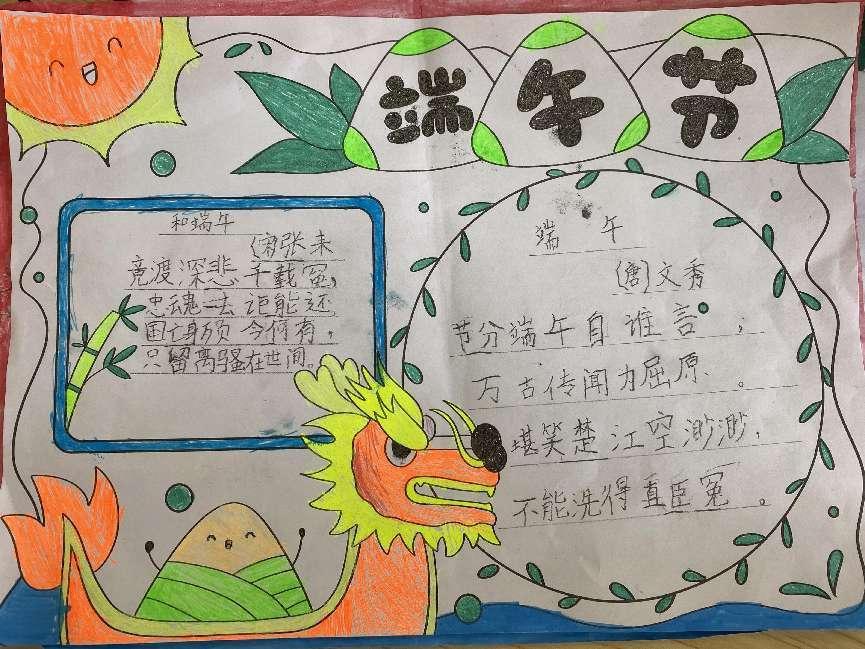 端午节
和端午
(宋)张耒
竞渡深悲千载冤,
忠魂一去讵能还
国亡身殒今何有,
只留离骚在世间。
端午
(唐)文秀
节分端午自谁言,
万古传闻为屈原。
堪笑楚江空渺渺,
不能洗得直臣冤。